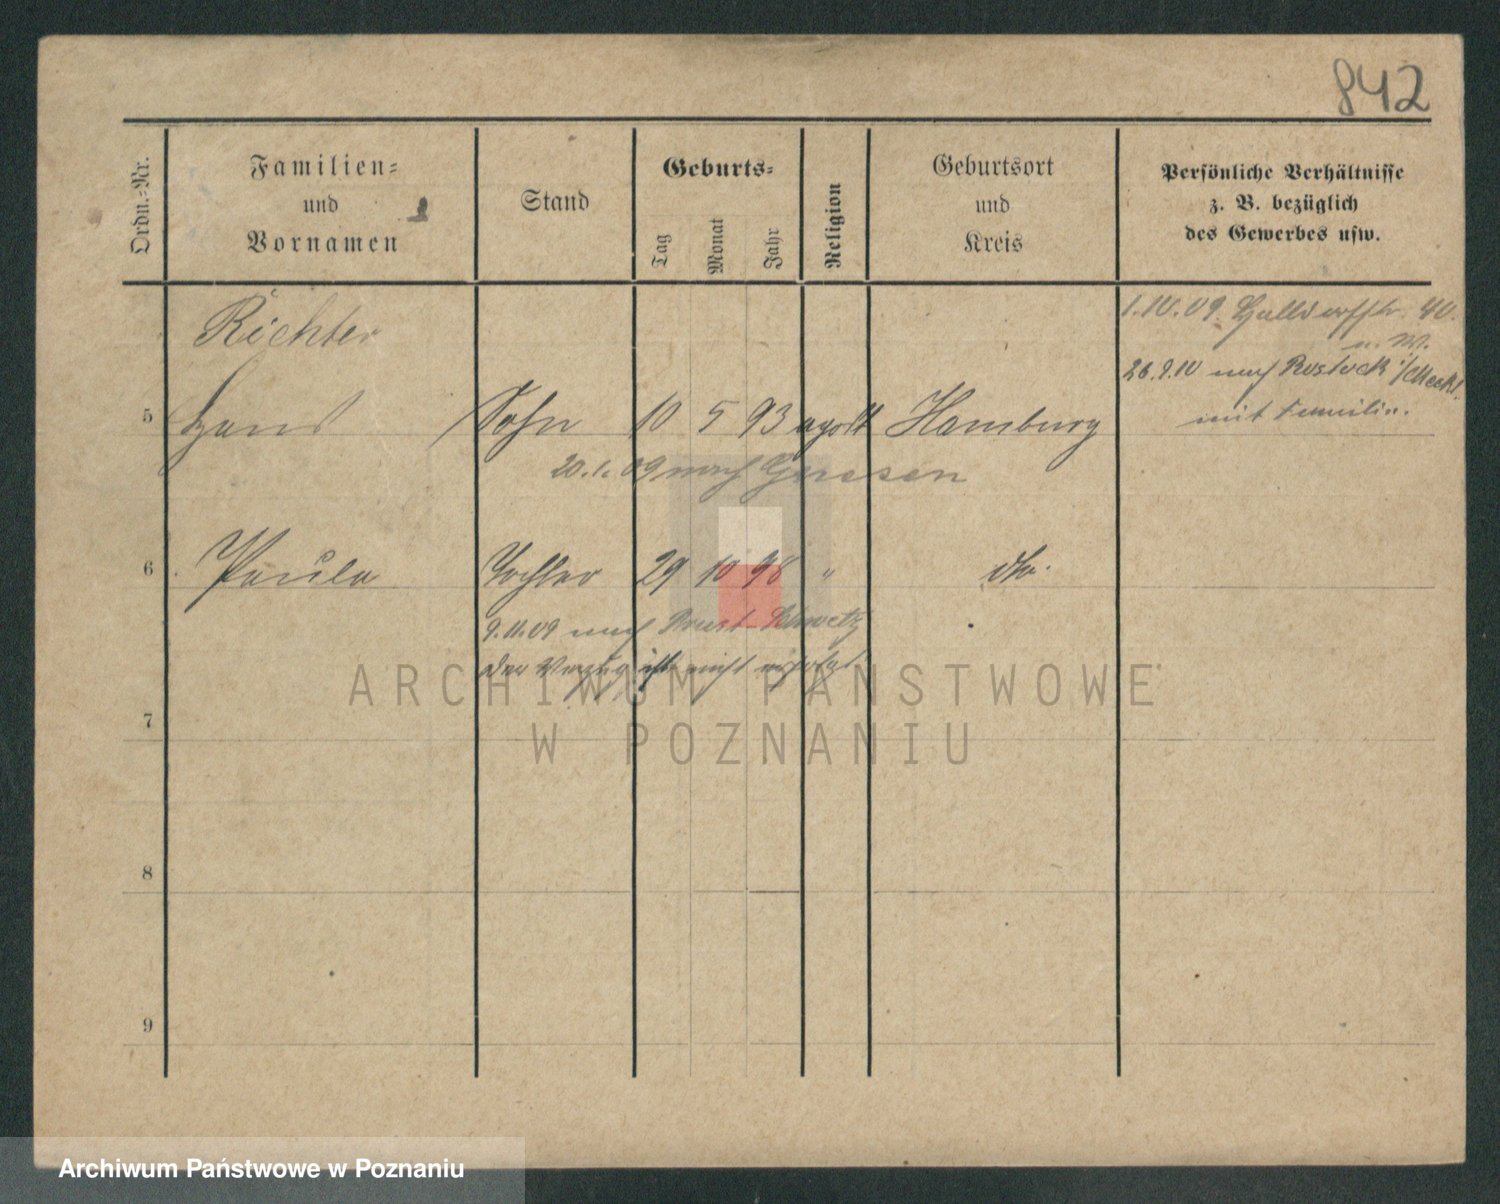 842
Ordn.-Nr.
Familien-
und
Vornamen
Stand
Geburts-
Tag
Monat
Jahr
Religion
Geburtsort
und
Kreis
Persönliche Verhältnisse
z. B. bezüglich
des Gewerbes usw.
Richter
1.10.09. 40.
26.9.10 nach Rostock i/Meckl.
mit Familie.
5 Hans Sohn 10 5 93 Hamburg
20.1.09 nach
6 Paula Tochter 29 10 98 " dto.
9.11.09 nach Prust Schwetz
der Verzug ist nicht erfolgt
ARCHIWUM PAŃSTWOWE
W POZNANIU
7
8
9
Archiwum Państwowe w Poznaniu